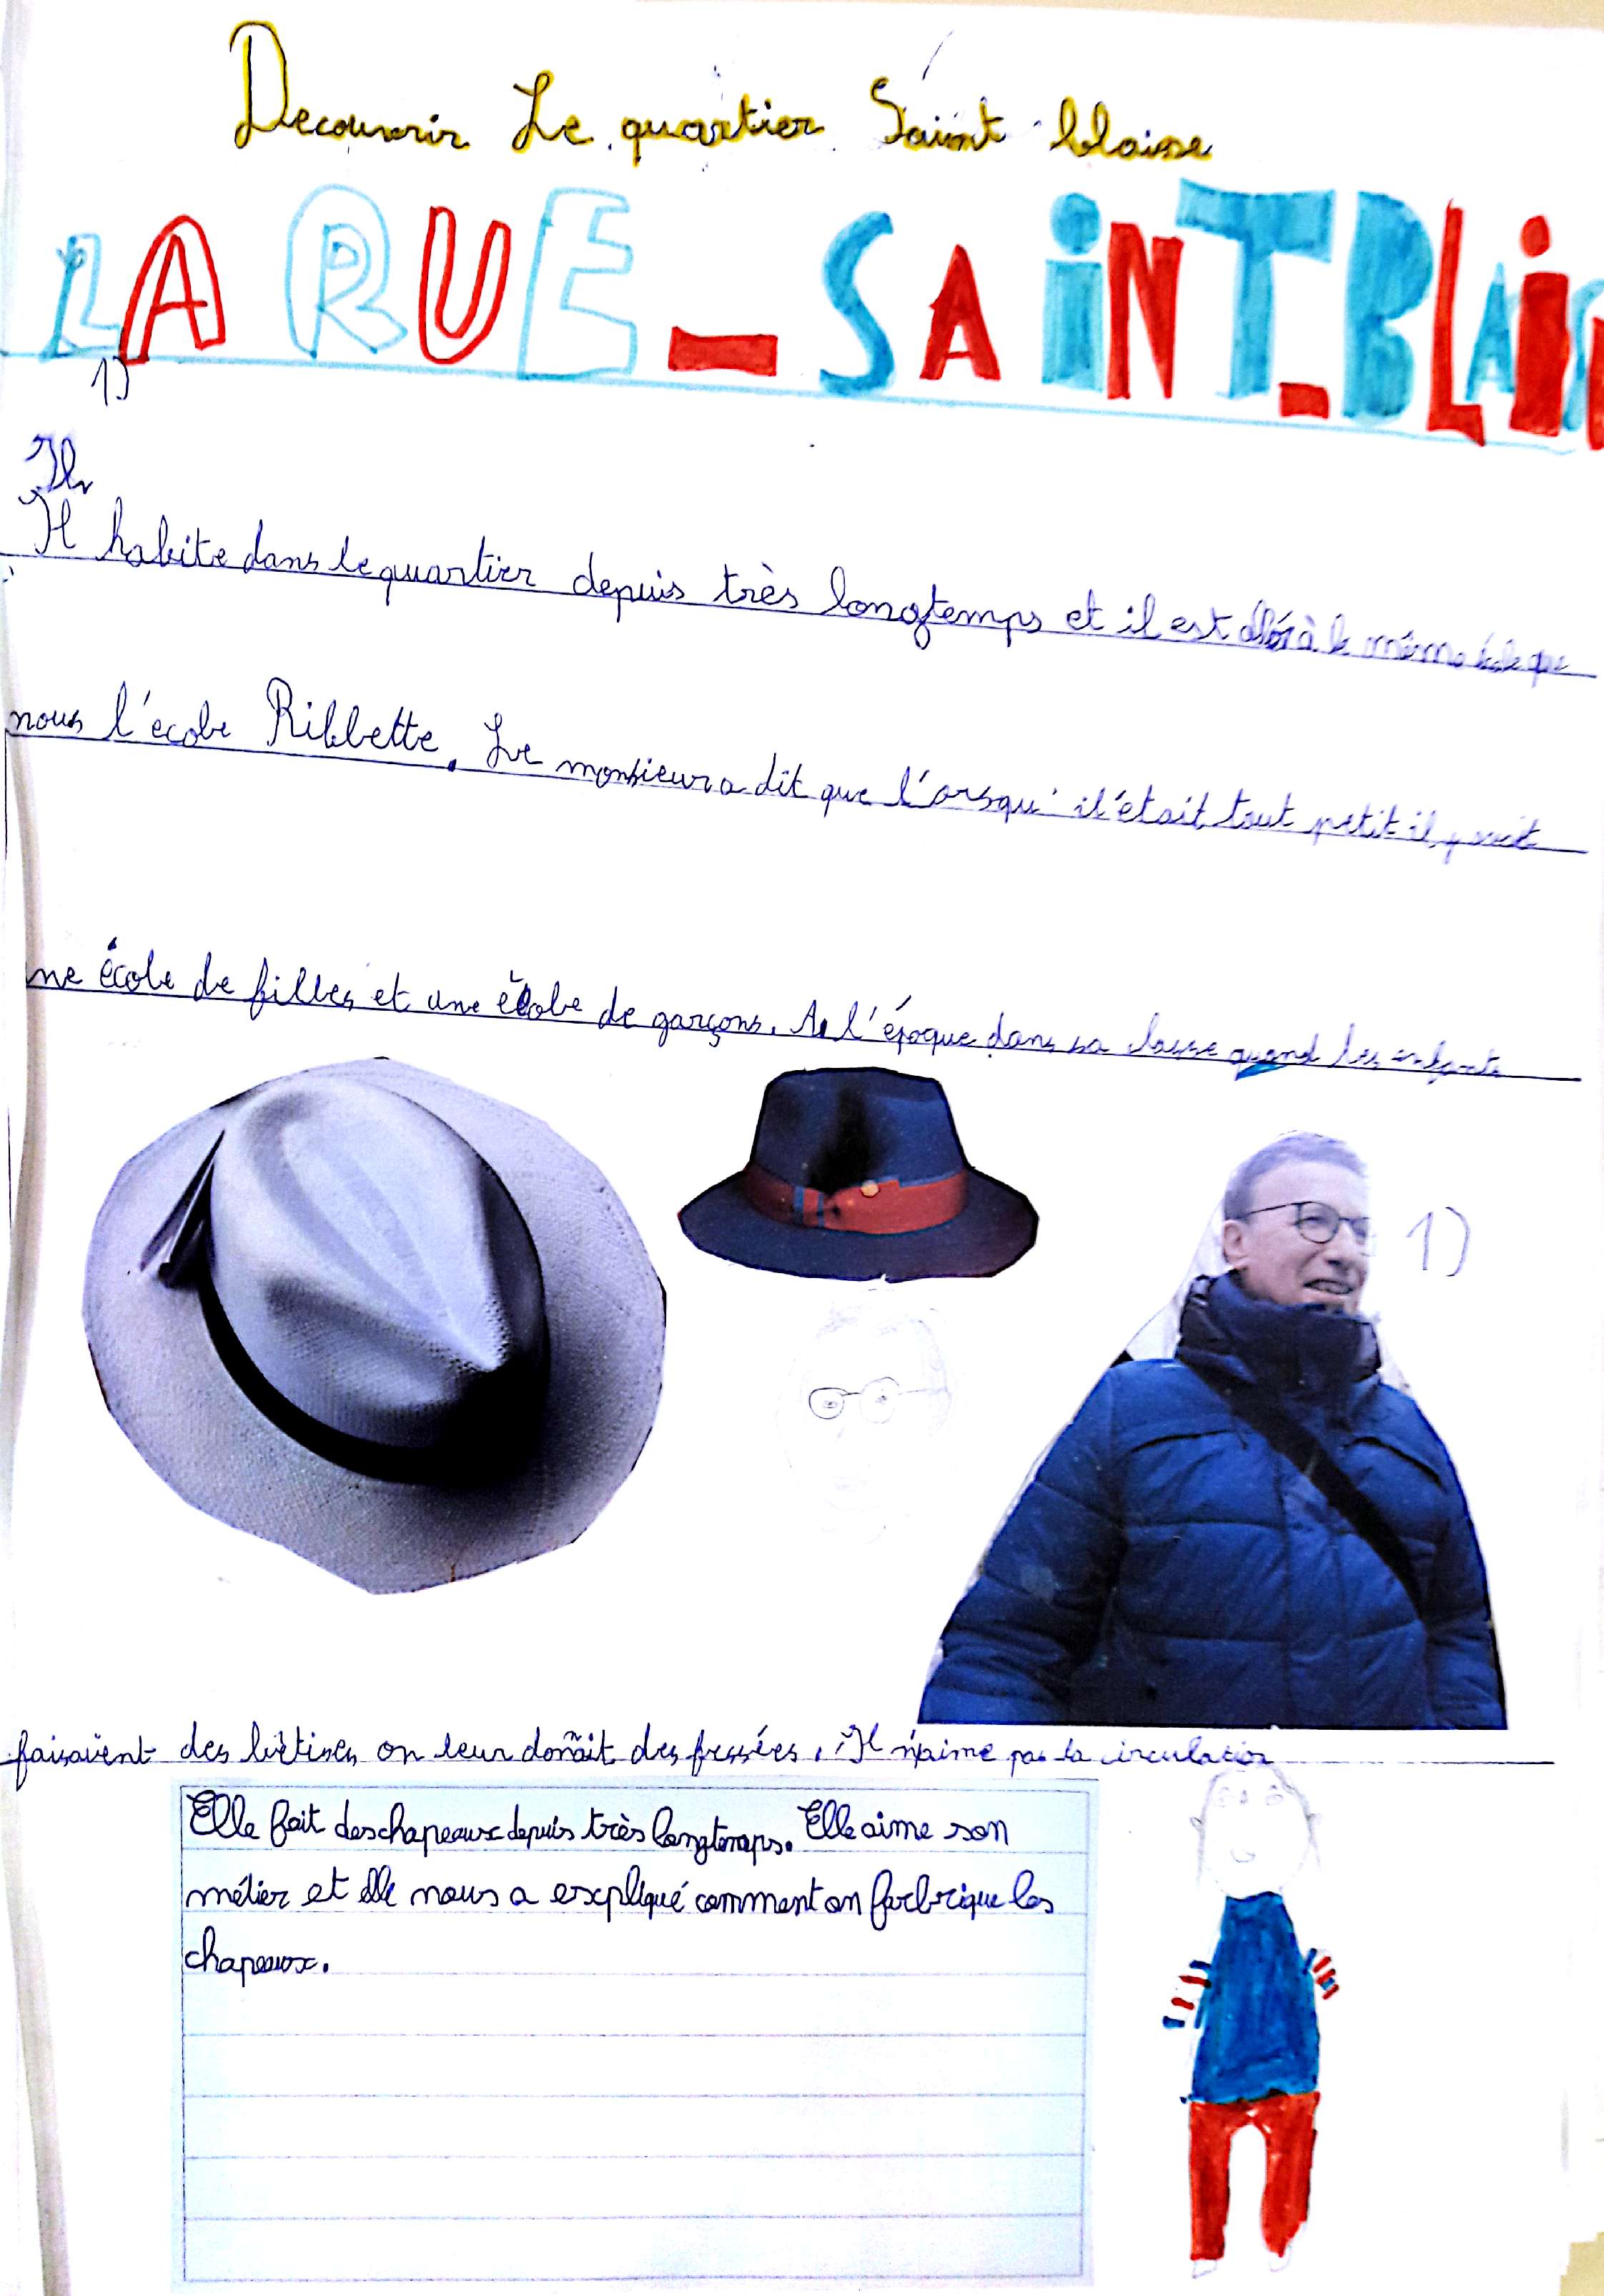 Decouvrir Le quartier Saint blaise
LA RUE_SAiNT_BLAiS
1)
Il
Il habite dans le quartier depuis très longtemps et il est allé à la même école que
nous l'ecole Riblette. Le monsieur a dit que l'orsqu'il était tout petit il y avait
une école de filles et une école de garçons. A l'époque dans sa classe quand les enfants
1)
faisaient des bêtises on leur donnait des fessées. Il n'aime pas la circulation
Elle fait des chapeaux depuis très longtemps. Elle aime son
métier et elle nous a expliqué comment on farbrique les
chapeaux.